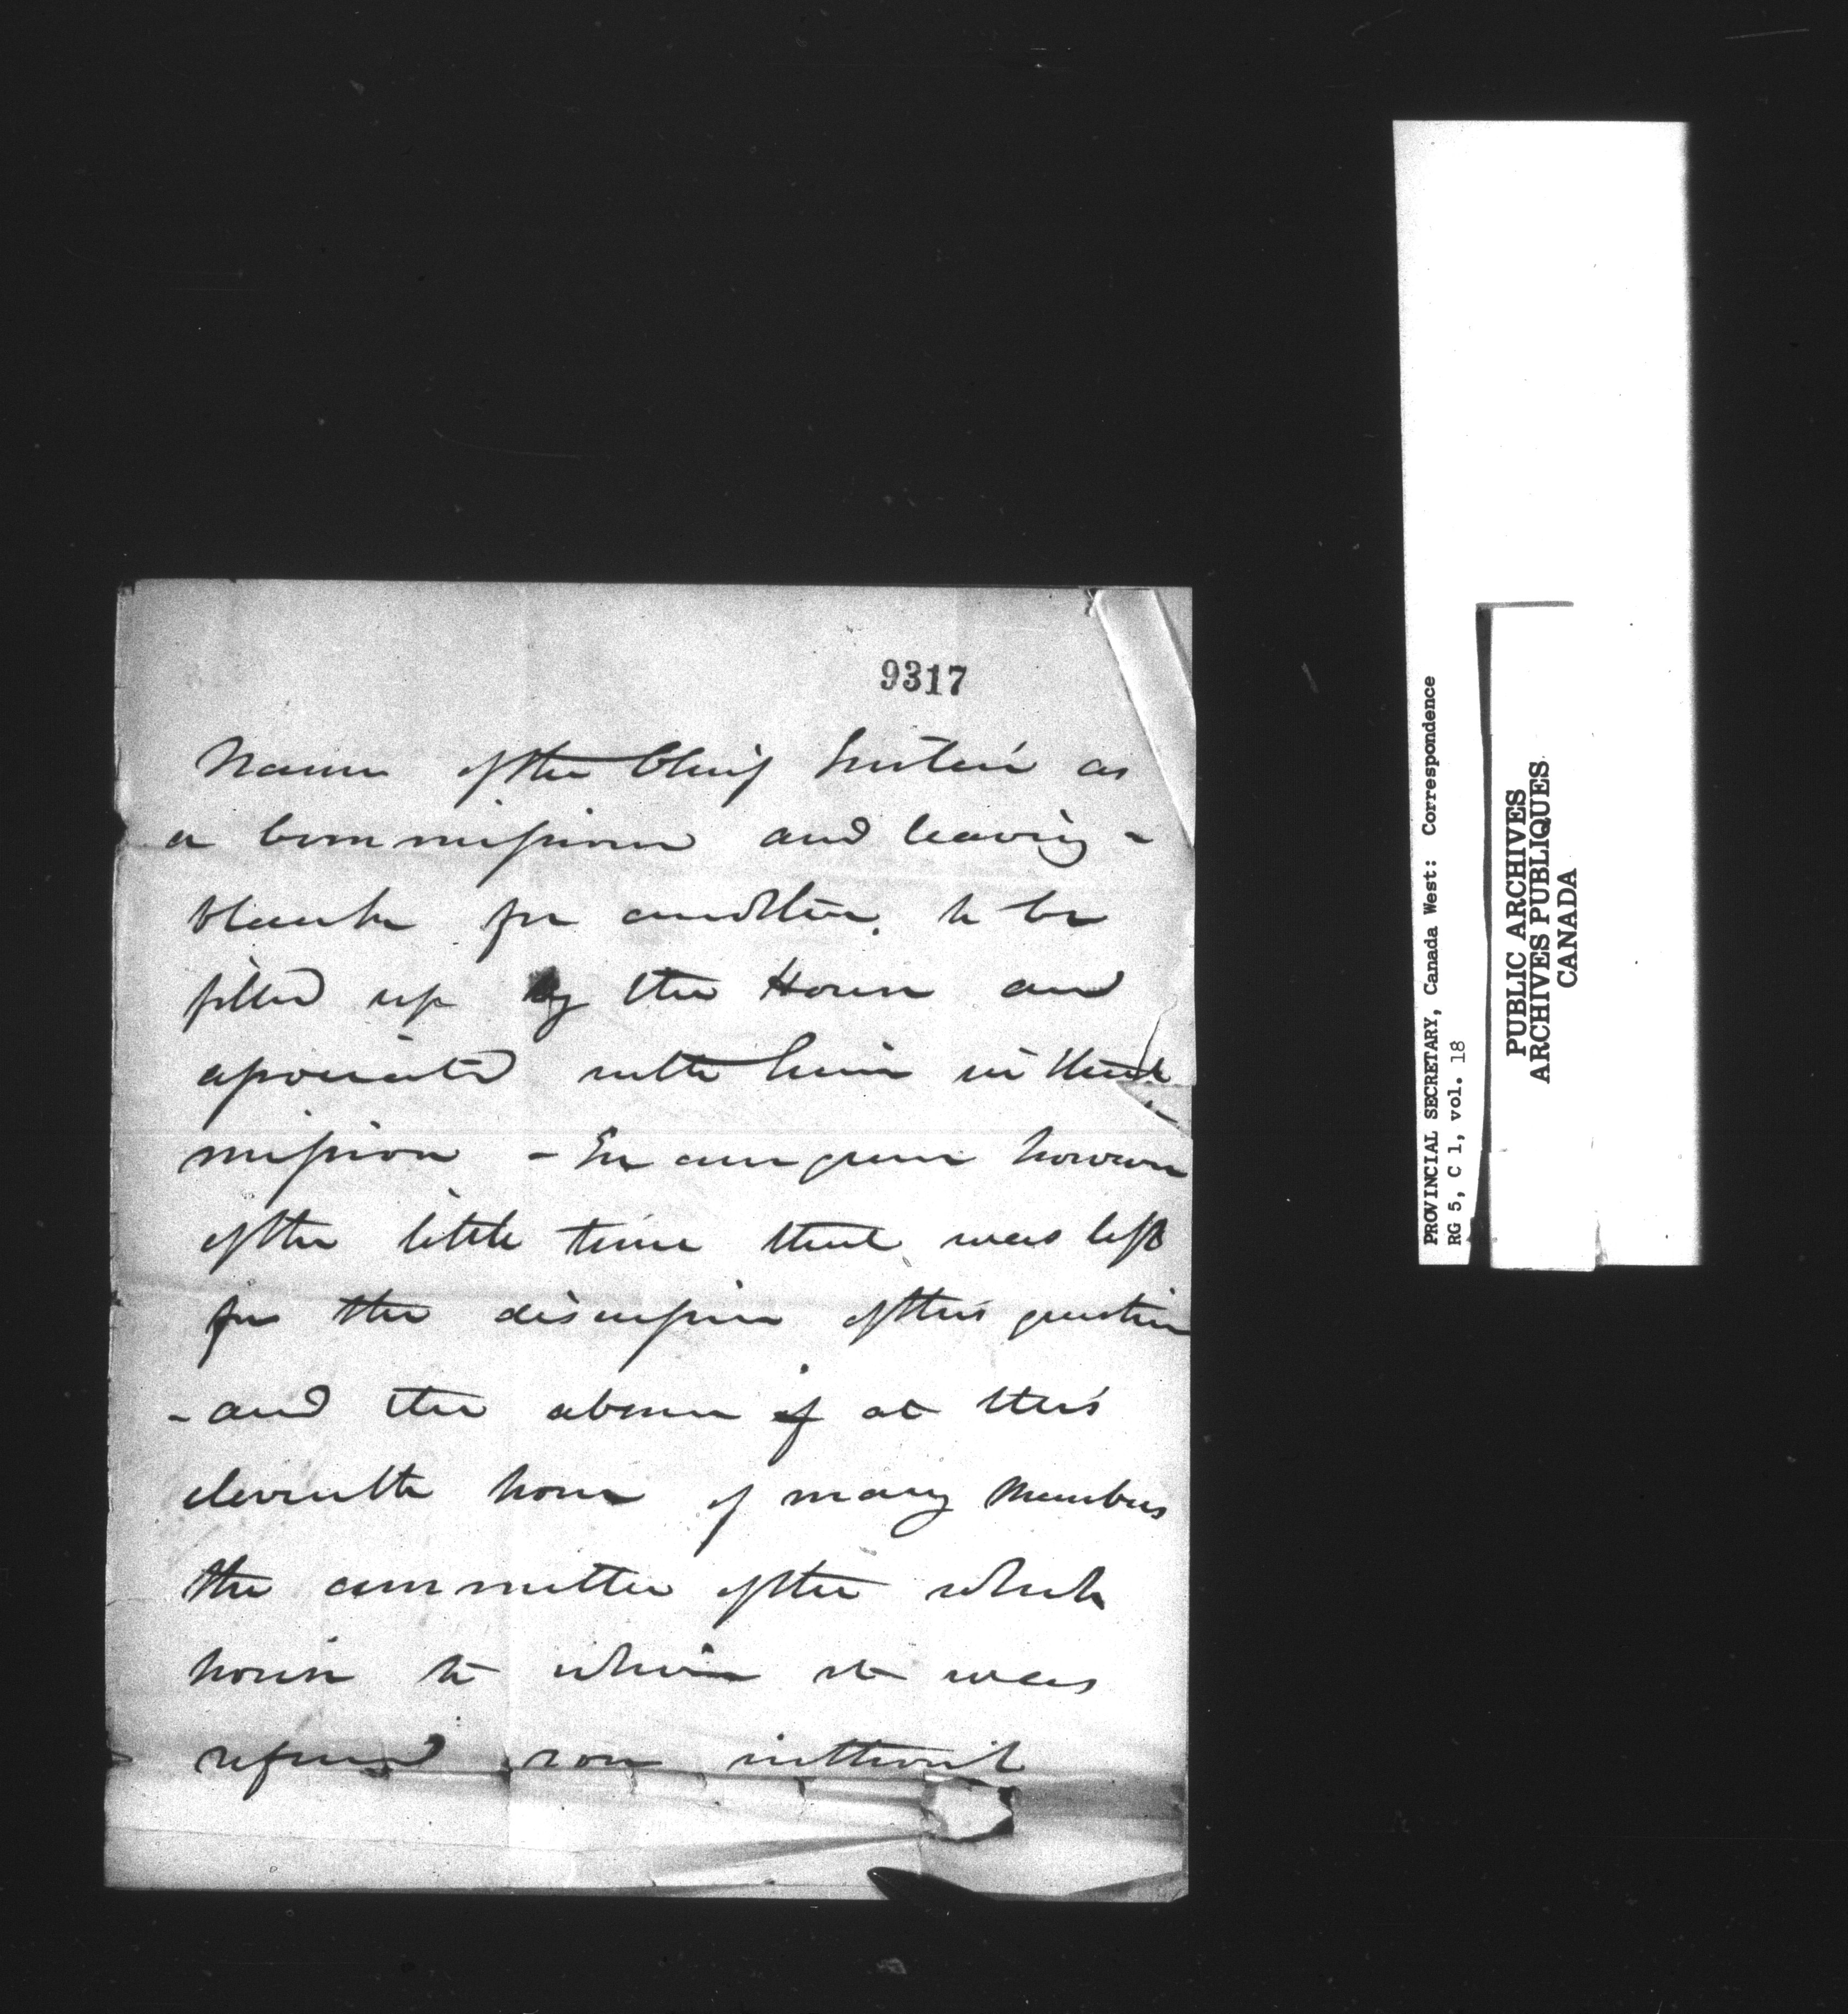 9317
Name of the Chief Justice as
a Commissioner and leaving a
blank for another to be
filled up by the House and
associated with him in that
mission - In consequence however
of the little time that was left
for the discussion of this question
- and the absence of at this
eleventh hour of many Members
the committee of the whole
house to whom it was
referred rose without
PROVINCIAL SECRETARY, Canada West: Correspondence
RG 5, C 1, vol. 18
PUBLIC ARCHIVES
ARCHIVES PUBLIQUES
CANADA